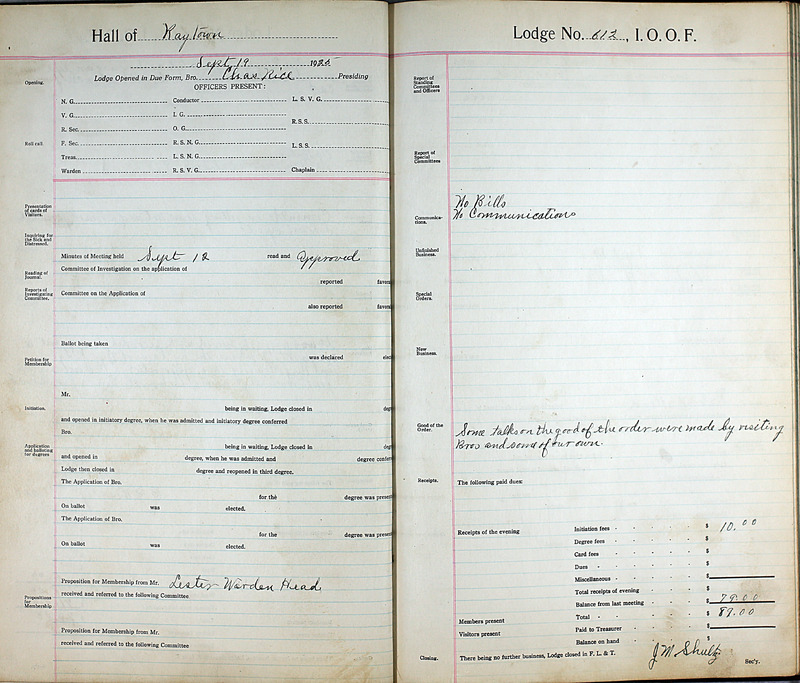 Hall of Raytown
Sept 19 1925
Opening.
Lodge Opened in Due Form, Bro. Chas Rice Presiding
OFFICERS PRESENT:
N. G. Conductor L. S. V. G.
V. G. I. G. R.S.S.
R. Sec. O. G.
Roll call
F. Sec. R. S. N. G. L. S. S.
Treas. L. S. N. G.
Warden R. S. V. G. Chaplain
Presentation of cards of Visitors.
Inquiring for the Sick and Distressed.
Minutes of Meeting held Sept 12 read and approved
Reading of Journal.
Committee of Investigation on the application of
reported
Reports of Investigating Committee.
Committee on the Application of
also reported
Ballot being taken
Petition for Membership
was declared
Mr.
Initiation.
being in waiting, Lodge closed in
and opened in initiatory degree, when he was admitted and initiatory degree conferred
Bro.
Application and balloting for degrees
being in waiting, Lodge closed in
and opened in degree, when he was admitted and degree
Lodge then closed in degree and reopened in third degree.
The Application of Bro.
for the degree was
On ballot was elected.
The Application of Bro.
for the degree was
On ballot was elected.
Proposition for Membership from Mr. Lester Warden Head
Propositions for Membership
received and referred to the following Committee
Proposition for Membership from Mr.
received and referred to the following Committee
Lodge No. 612, I. O. O. F.
Report of Standing Committees and Officers
Report of Special Committees
No Bills
Communications.
No Communications
Unfinished Business.
Special Orders.
New Business.
Good of the Order.
Some talks on the good of the order were made by visiting
Bros and some of our own.
Receipts.
The following paid dues:
Receipts of the evening
Initiation fees - $ 10.00
Degree fees - $
Card fees - $
Dues - $
Miscellaneous - $
Total receipts of evening $
Balance from last meeting $ 79.00
Total - $ 89.00
Members present
Paid to Treasurer - $
Visitors present
Balance on hand $
Closing.
There being no further business, Lodge closed in F. L. & T. J M Shultz Sec'y.